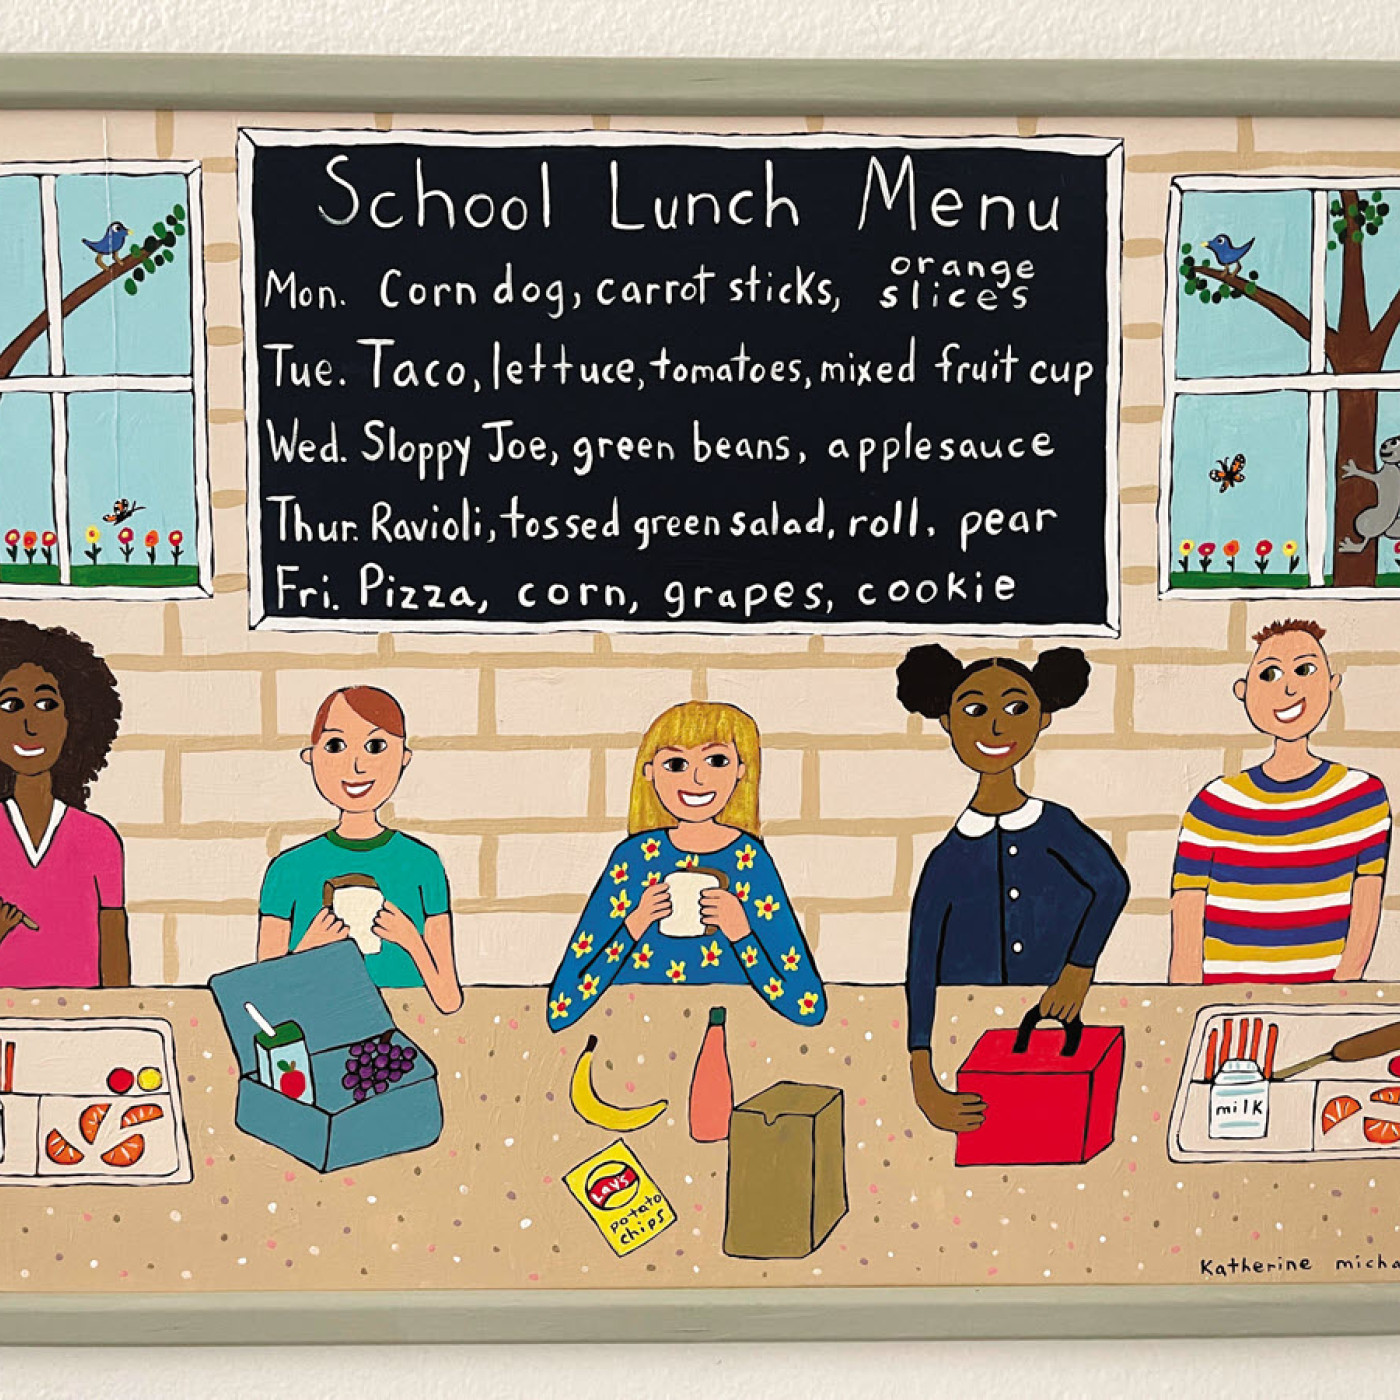 School Lunch Menu
Mon. Corn dog, carrot sticks, orange slices
Tue. Taco, lettuce, tomatoes, mixed fruit cup
Wed. Sloppy Joe, green beans, applesauce
Thur. Ravioli, tossed green salad, roll, pear
Fri. Pizza, corn, grapes, cookie
milk
Lay's
potato
chips
Katherine micha